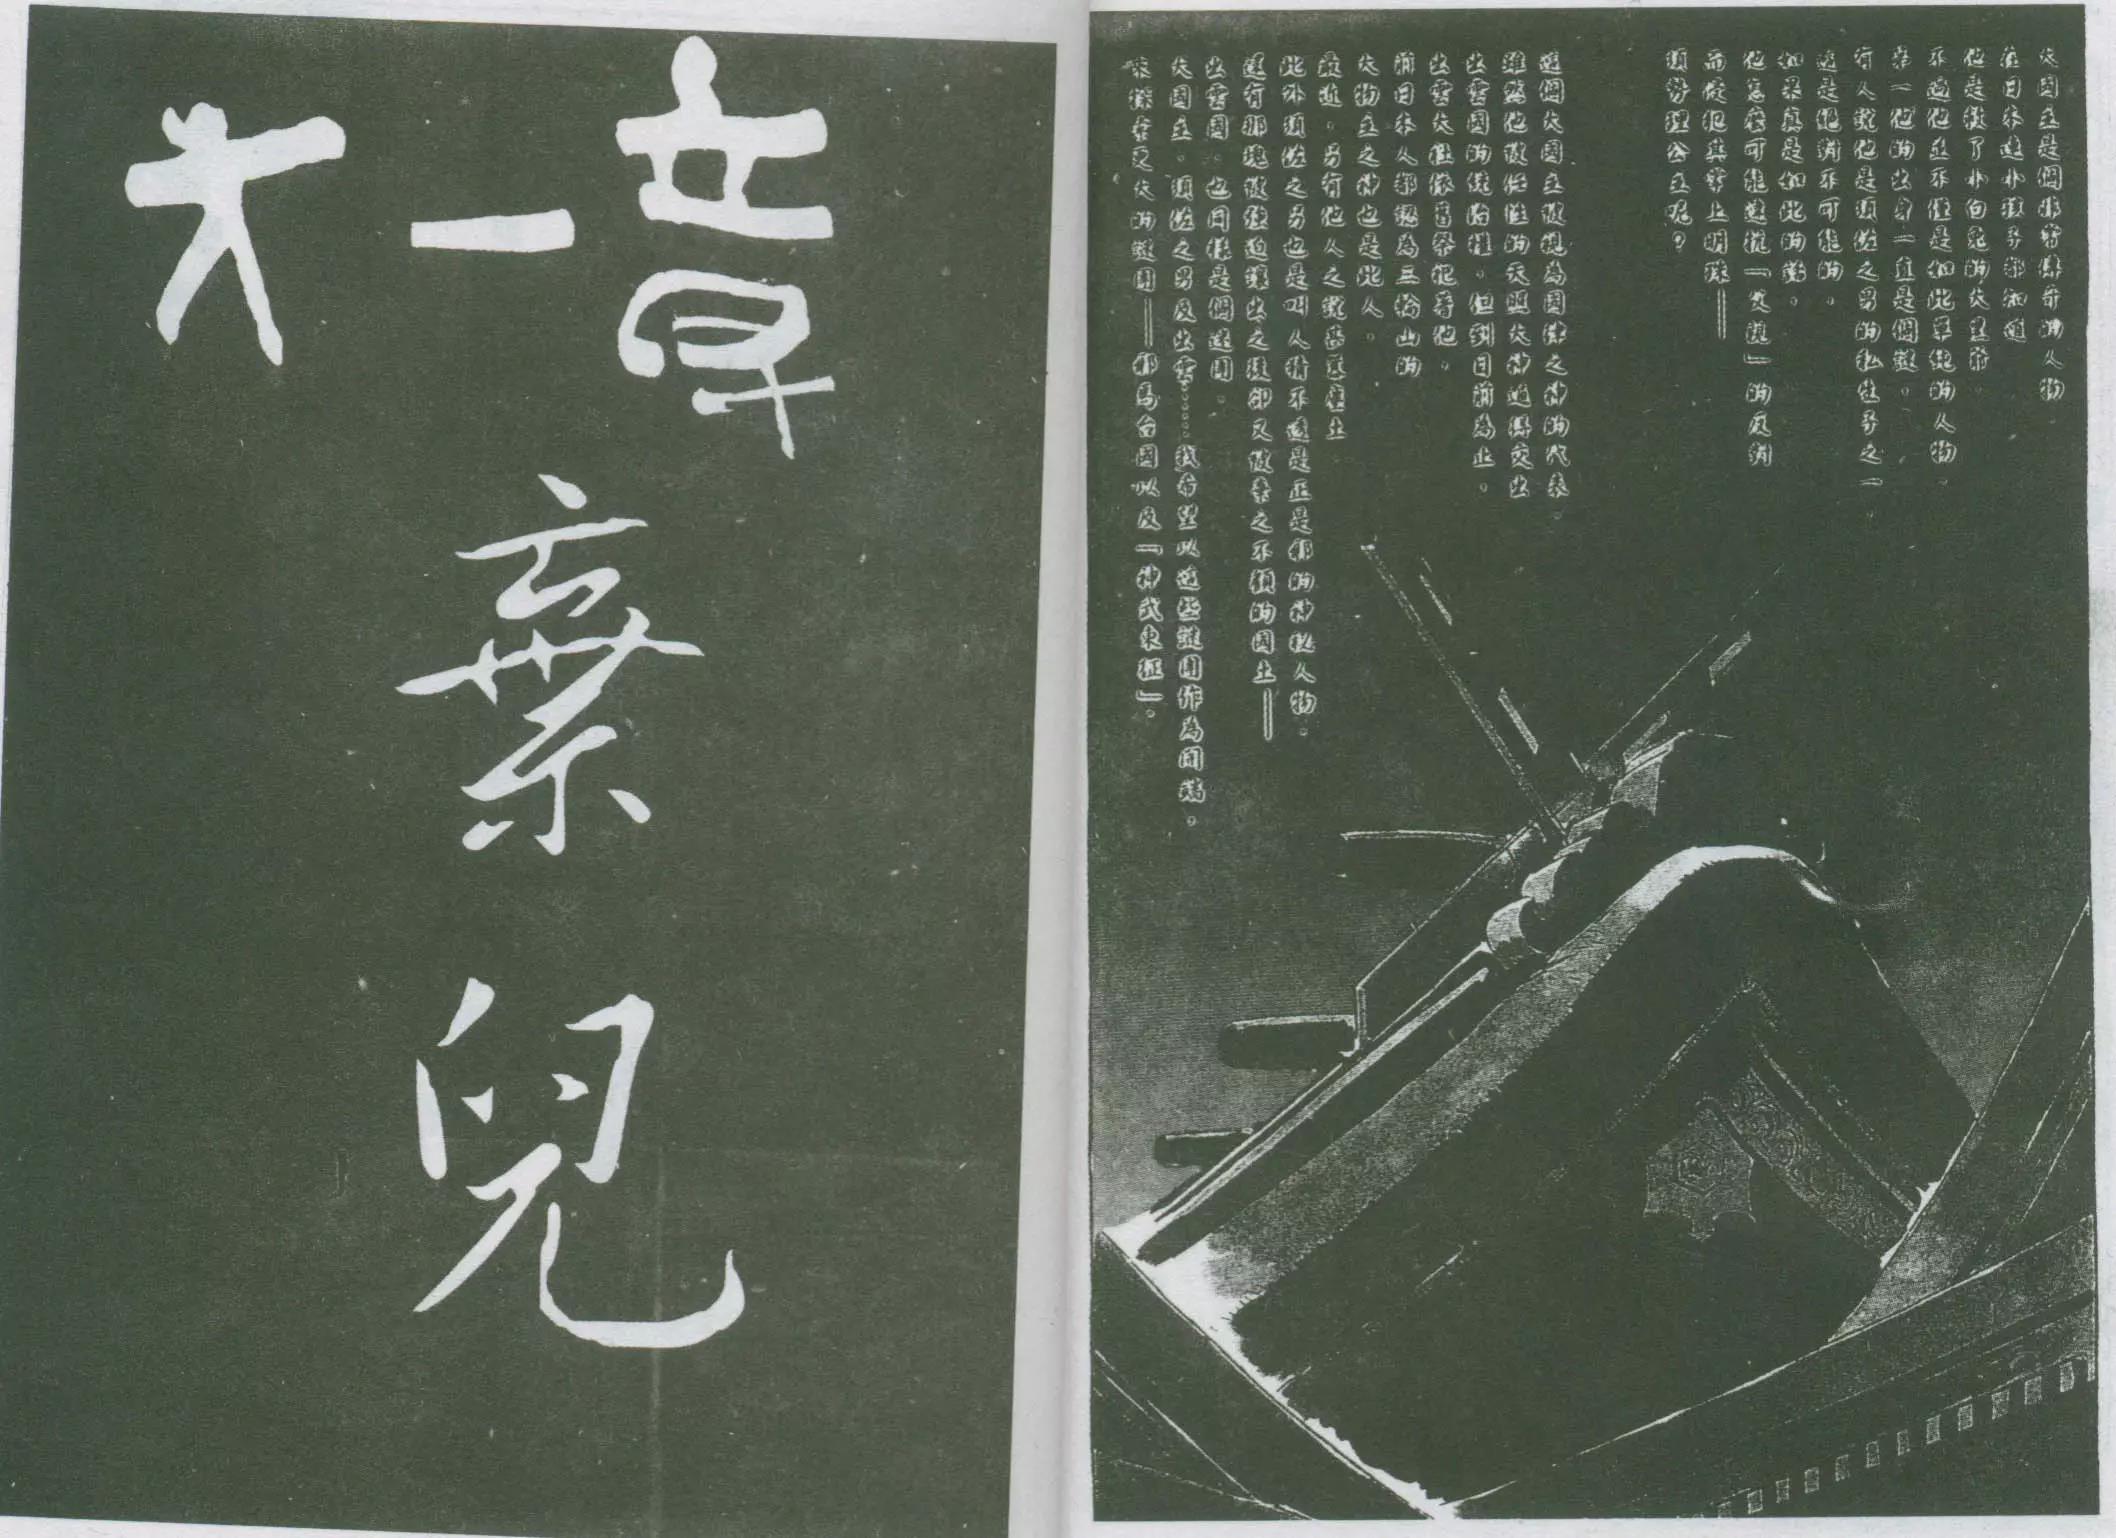 大國主是個非常傳奇的人物
在日本連小孩子都知道
他是救了小白兔的大黑爺。
不過他並不僅是如此單純的人物。
第一他的出身一直是個謎。
有人說他是須佐之男的私生子之一。
這是絕對不可能的。
如果真是如此的話。
他怎麼可能違抗「父親」的反對
而侵犯其掌上明珠——
須勢理公主呢？
這個大國主被視為國津之神的代表。
雖然他被任性的天照大神迫得交出
出雲國的統治權，但到目前為止。
出雲大社依舊祭祀著他。
前日本人都認為三輪山的
大物主之神也是此人。
最近，另有他人之說甚囂塵上
此外須佐之男也是叫人猜不透是正是邪的神秘人物。
還有那塊被強迫讓出之後卻又被棄之不顧的國土——
出雲國，也同樣是個謎團。
大國主，須佐之男及出雲……我希望以這些謎團作為開端，
來探索更大的謎團——邪馬台國以及「神武東征」。
才一章
棄兒